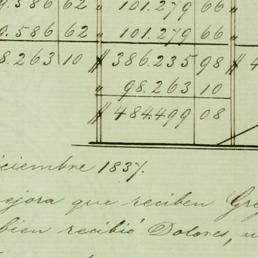 9.586 62 " 101.279 66 "
9.586 62 " 101.279 66 "
8.263 10 $ 386.235 98 $ 4
" 98.263 10
$ 484.499 08
iciembre 1837.
ejora que reciben Gre
bien recibió Dolores, u